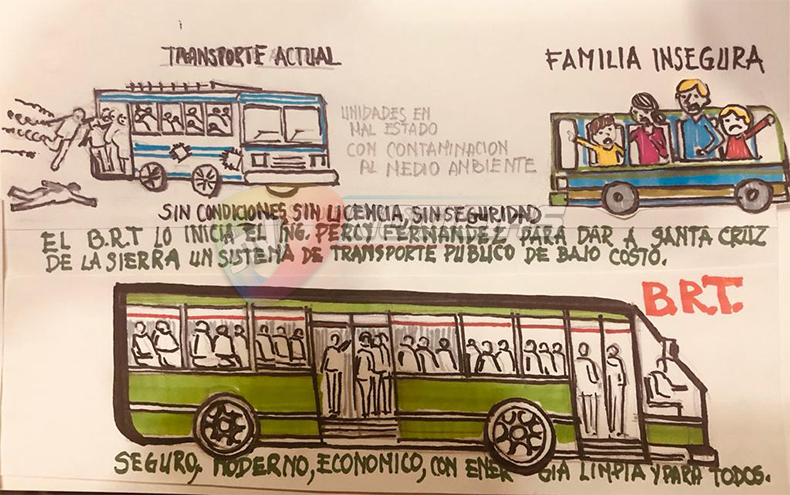 TRANSPORTE ACTUAL
FAMILIA INSEGURA
UNIDADES EN
MAL ESTADO
CON CONTAMINACION
AL MEDIO AMBIENTE
SIN CONDICIONES, SIN LICENCIA, SIN SEGURIDAD
EL B.R.T LO INICIA EL ING. PERCY FERNANDEZ PARA DAR A SANTA CRUZ
DE LA SIERRA UN SISTEMA DE TRANSPORTE PUBLICO DE BAJO COSTO.
B.R.T.
SEGURO, MODERNO, ECONOMICO, CON ENERGIA LIMPIA Y PARA TODOS.